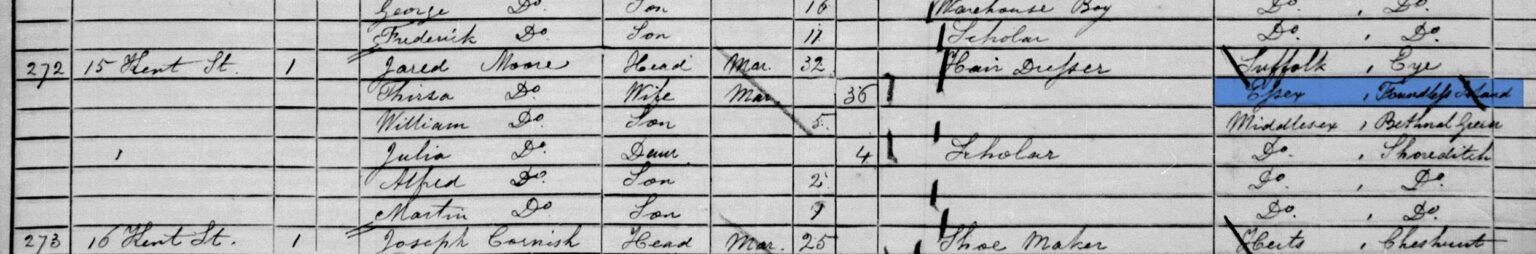 George Do. Son 16 Warehouse Boy Do. , Do.
Frederick Do. Son 11 Scholar Do. , Do.
272 15 Kent St. 1 Jared Moore Head Mar. 32 Hair Dresser Suffolk , Eye
Thirsa Do. Wife Mar. 36 Essex , Foundless Island
William Do. Son 5 Middlesex , Bethnal Green
Julia Do. Daur. 4 Scholar Do. , Shoreditch
Alfred Do. Son 2 Do. , Do.
Martin Do. Son Do. , Do.
273 16 Kent St. 1 Joseph Cornish Head Mar. 25 Shoe Maker Herts , Cheshunt